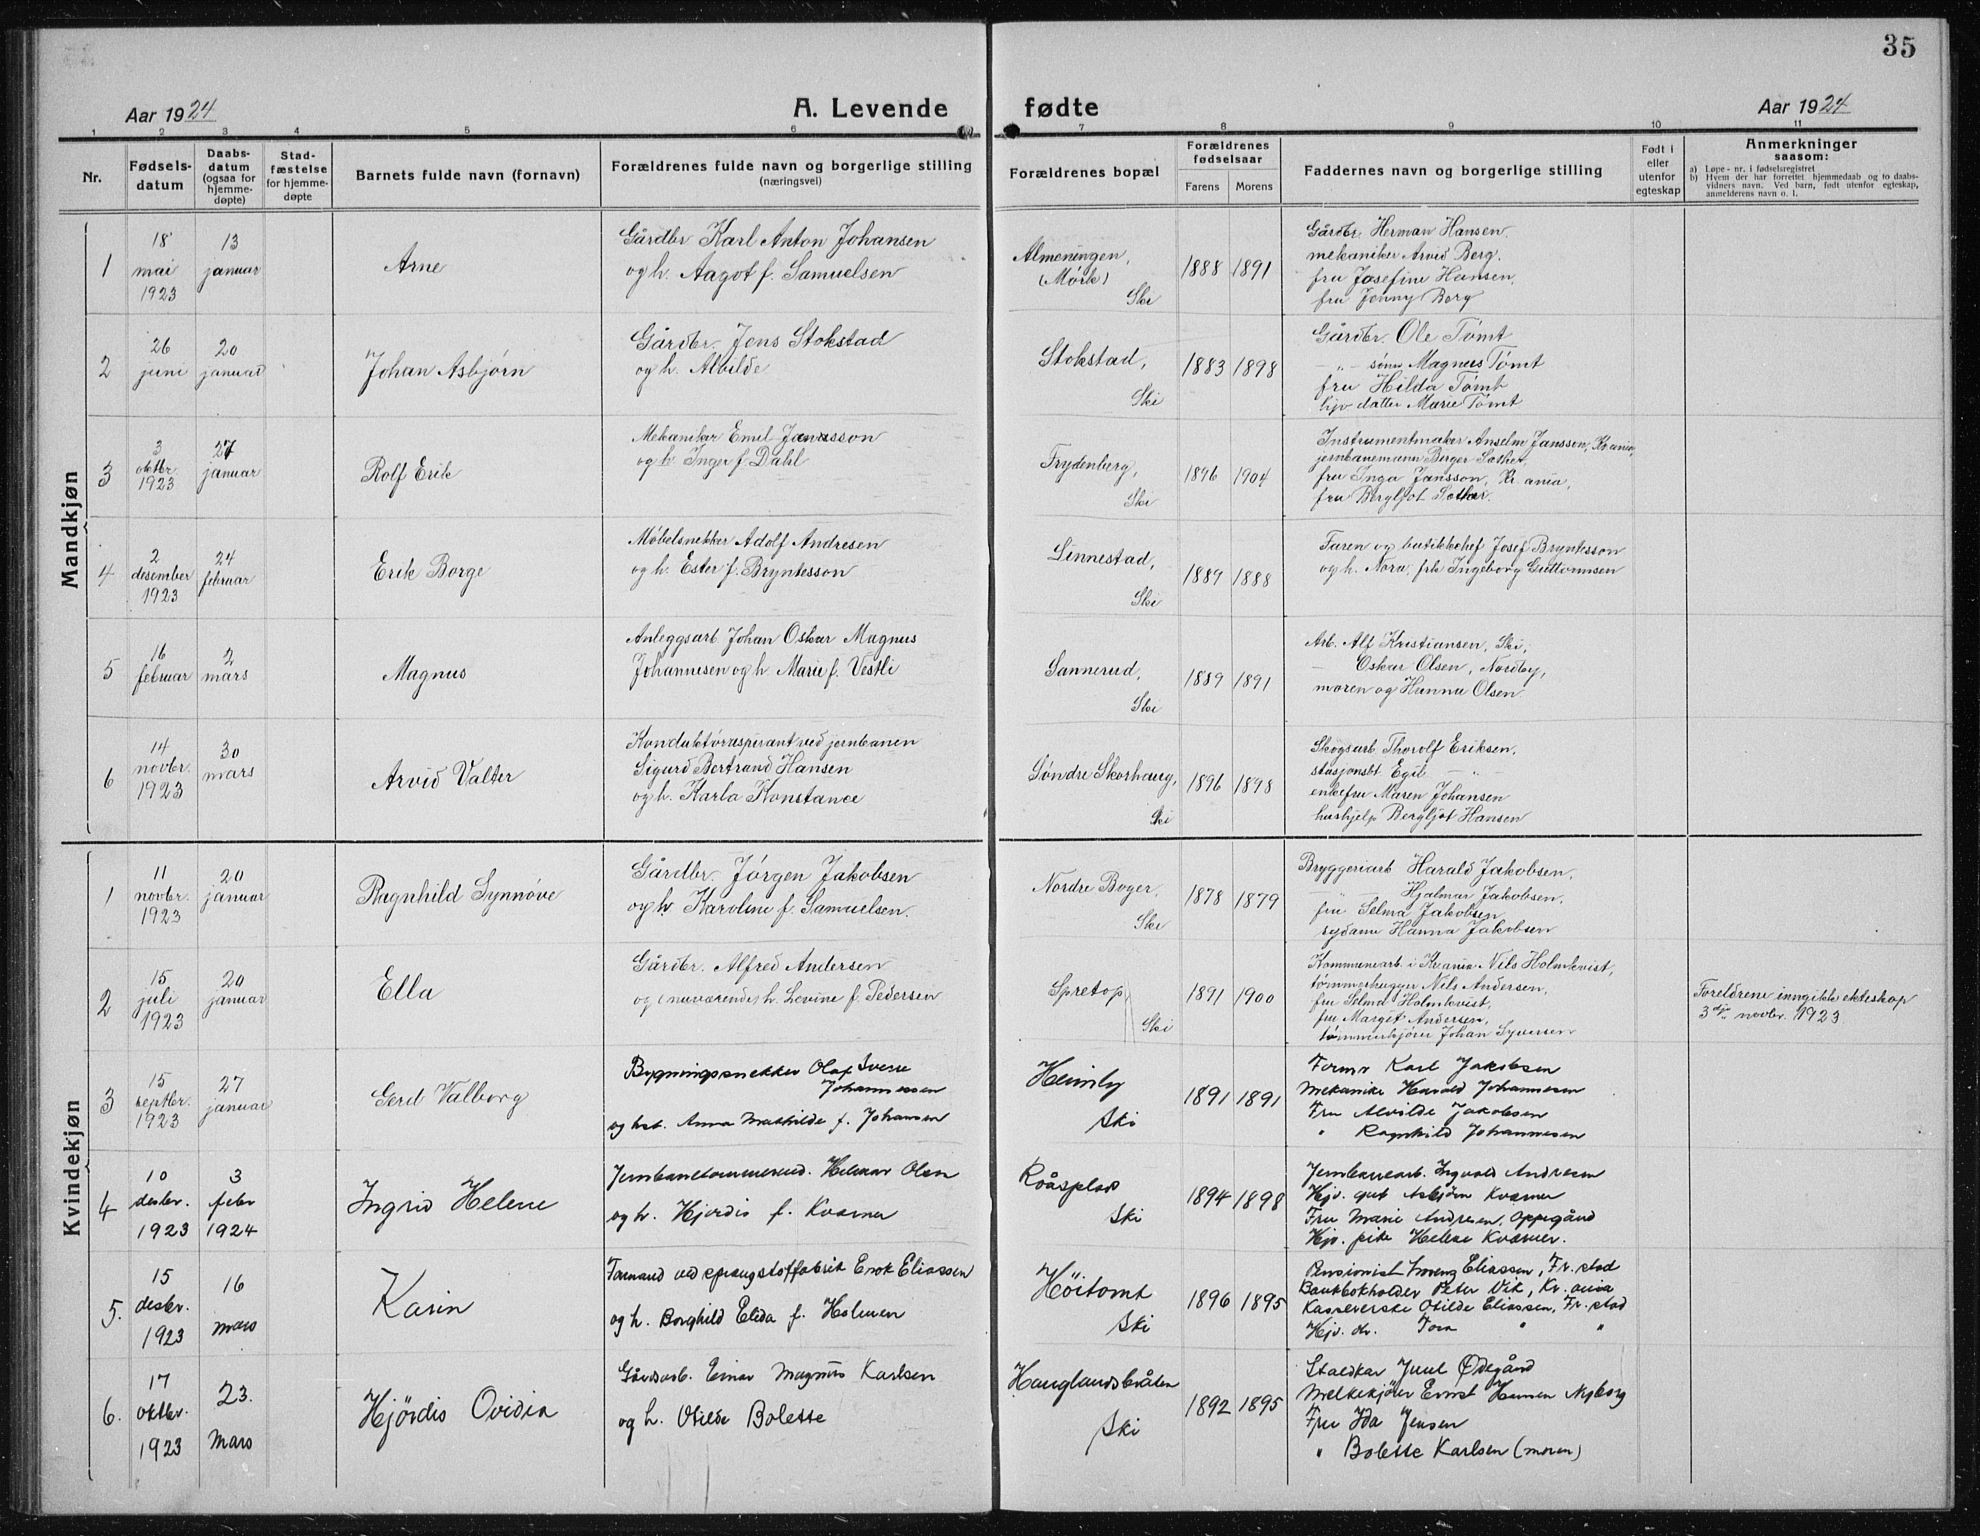 35
Aar 1924
A. Levende fødte
Aar 1924
1 2 3 4 5 6 7 8 9 10 11
Nr.
Fødselsdatum
Daabsdatum (ogsaa for hjemmedøpte)
Stadfæstelse for hjemmedøpte
Barnets fulde navn (fornavn)
Forældrenes fulde navn og borgerlige stilling
(næringsvei)
Forældrenes bopæl
Forældrenes fødselsaar
Farens Morens
Faddernes navn og borgerlige stilling
Født i eller utenfor egteskap
Anmerkninger
saasom:
a) Løpe-nr. i fødselsregistret
b) Hvem der har forrettet hjemmedaab og to daabsvidners navn. Ved barn, født utenfor egteskap, anmelderens navn o. l.
Mandkjøn
1
18 mai 1923
13 januar
Arne
Gårdbr Karl Anton Johansen
og h. Aagot f. Samuelsen
Almeningen,
(Mørk)
Ski
1888 1891
Gårdbr. Herman Hansen,
mekaniker Arvid Berg.
fru Josefine Hansen,
fru Jenny Berg
2
26 juni
20 januar
Johan Asbjørn
Gårdbr. Jens Stokstad
og h. Alvilde
Stokstad,
Ski
1883 1898
Gårdbr. Ole Tømt
— " — sønn Magnus Tømt
fru Hilda Tømt
hjv datter Marie Tømt
3
3 oktbr. 1923
27 januar
Rolf Erik
Mekaniker Emil Jansson
og h. Inger f. Dahl
Frydenberg,
Ski
1896 1904
Instrumentmaker Anselm Janssen, Kr.ania,
jernbanemann Berger Sæther,
fru Inga Jansson, Kr. ania,
fru Bergljot Sæther.
4
2 desember 1923
24 februar
Erik Borge
Møbelsnekker Adolf Andresen
og h. Ester f. Bryntesson
Linnestad,
Ski
1889 1888
Faren og butikkchef Josef Bryntesson
og h. Nora, frk Ingeborg Guttormsen
5
16 februar
2 mars
Magnus
Anleggsarb. Johan Oskar Magnus
Johannesen og h Marie f. Vestli
Sannerud,
Ski
1889 1891
Arb. Alf Kristiansen, Ski,
— Oskar Olsen, Nordby,
moren og Hanna Olsen
6
14 novbr. 1923
30 mars
Arvid Valter
Konduktøraspirant ved jernbanen
Sigurd Bertrand Hansen
og h. Karla Konstance
Søndre Skorhaug,
Ski
1896 1898
Skogsarb Thorolf Eriksen,
stasjonsbt Egil — " —
enkefru Maren Johansen
hushjelp Bergljot Hansen
Kvindekjøn
1
11 novbr. 1923
20 januar
Ragnhild Synnøve
Gårdbr. Jørgen Jakobsen
og h Karoline f. Samuelsen.
Nordre Boger,
Ski
1878 1879
Bryggeriarb Harald Jakobsen,
— " — Hjalmar Jakobsen,
fru Selma Jakobsen
sydame Hanna Jakobsen
2
15 juli 1923
20 januar
Ella
Gårdbr. Alfred Andersen
og (nuværende) h. Levine f. Pedersen
Spretop,
Ski
1891 1900
Kommunearb. i Kr.ania Nils Holmkvist,
tømmerhugger Nils Andersen,
fru Selma Holmkvist,
fru Margit Andersen,
tømmerkjører Johan Syversen
Foreldrene inngikk ekteskap
3dje novbr. 1923
3
15 septbr. 1923
27 januar
Gerd Valborg
Bygningssnekker Olaf Sverre
Johannessen
og hst. Anna Mathilde f. Johansen
Heimly
Ski
1891 1891
Former Karl Jakobsen
Mekanike Harald Johannesen
Fru Alvilde Jakobsen
" Ragnhild Johannesen
4
10 desbr. 1923
3 febr 1924
Ingrid Helene
Jernbanetømmermd. Helmar Olsen
og h. Hjørdis f. Kværner
Roåsplass
Ski
1894 1898
Jernbanearb. Ingvald Andresen
Hjv. gut Asbjørn Kværner
Fru Marie Andresen, Oppegård
Hjv. pike Helene Kværner.
5.
15 desbr. 1923
16 mars
Karin
Formand ved sprængstoffabrik Enok Eliassen
og h. Borghild Elida f. Holmen
Høitomt
Ski
1896 1895
Pensionist Lorenz Eliassen, Fr. stad
Bankbokholder Peter Vik, Kr. ania
Kassererske Otilde Eliassen, Fr. stad
Hjv. dr. Tora " "
6.
17 oktbr. 1923
23. Mars
Hjørdis Ovidia
Gårdsarb. Einar Magnus Karlsen
og h. Otilde Bolette
Hauglandsbråten
Ski
1892 1895
Staldkar Juul Ødegård
Melkekjører Ernst Hansen Nyborg
Fru Ida Jensen
" Bolette Karlsen (moren)